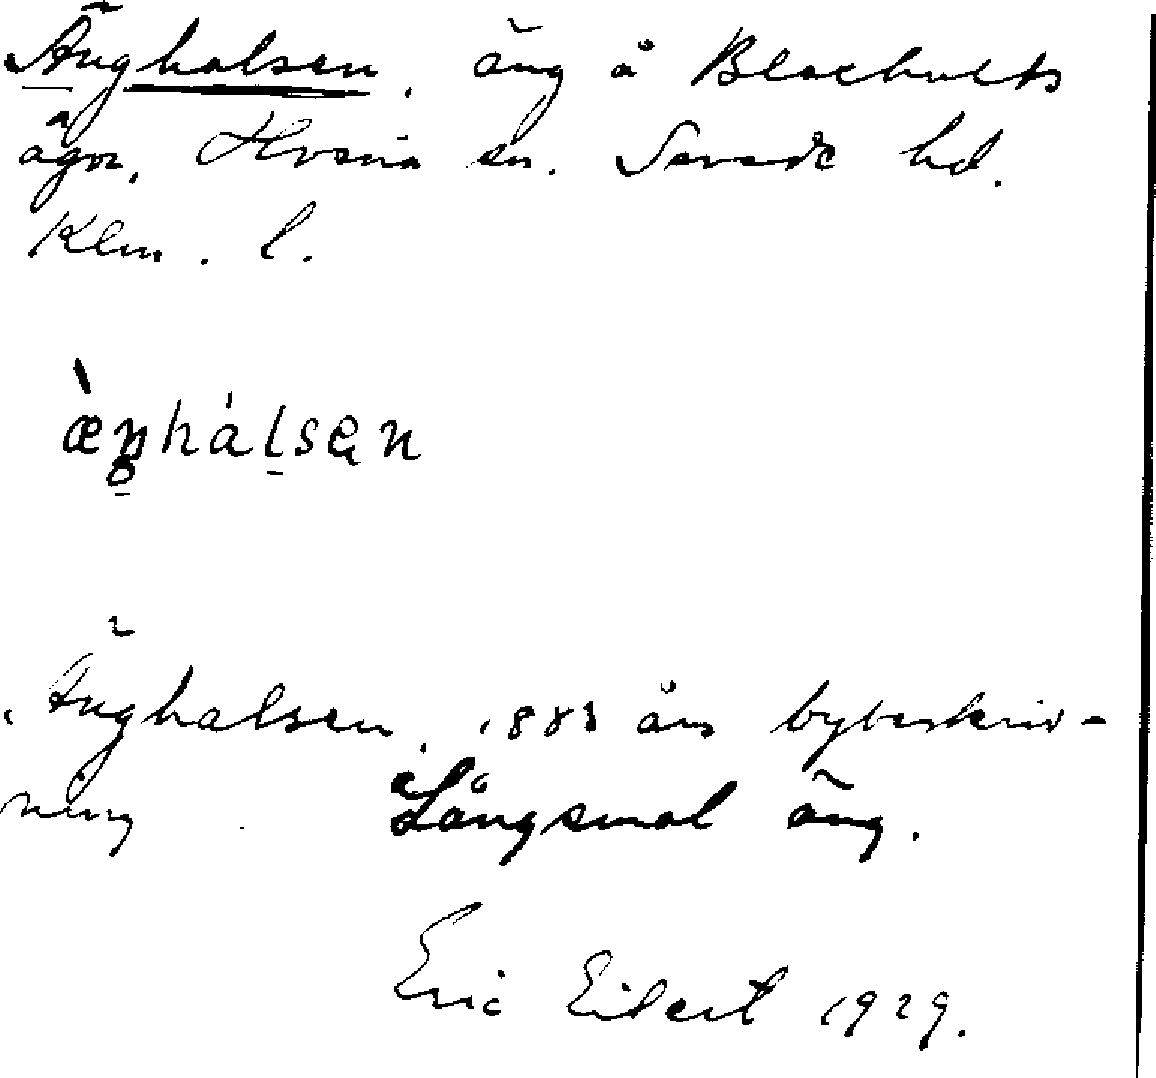 Änghalsen, äng å Blackhults
ägor, Hvena sn. Sevede hd.
Klm. l.
æ̀ŋhálsen
Änghalsen, 1883 års bybeskriv-
ning Långsmal äng.
Eric Eilert 1929.